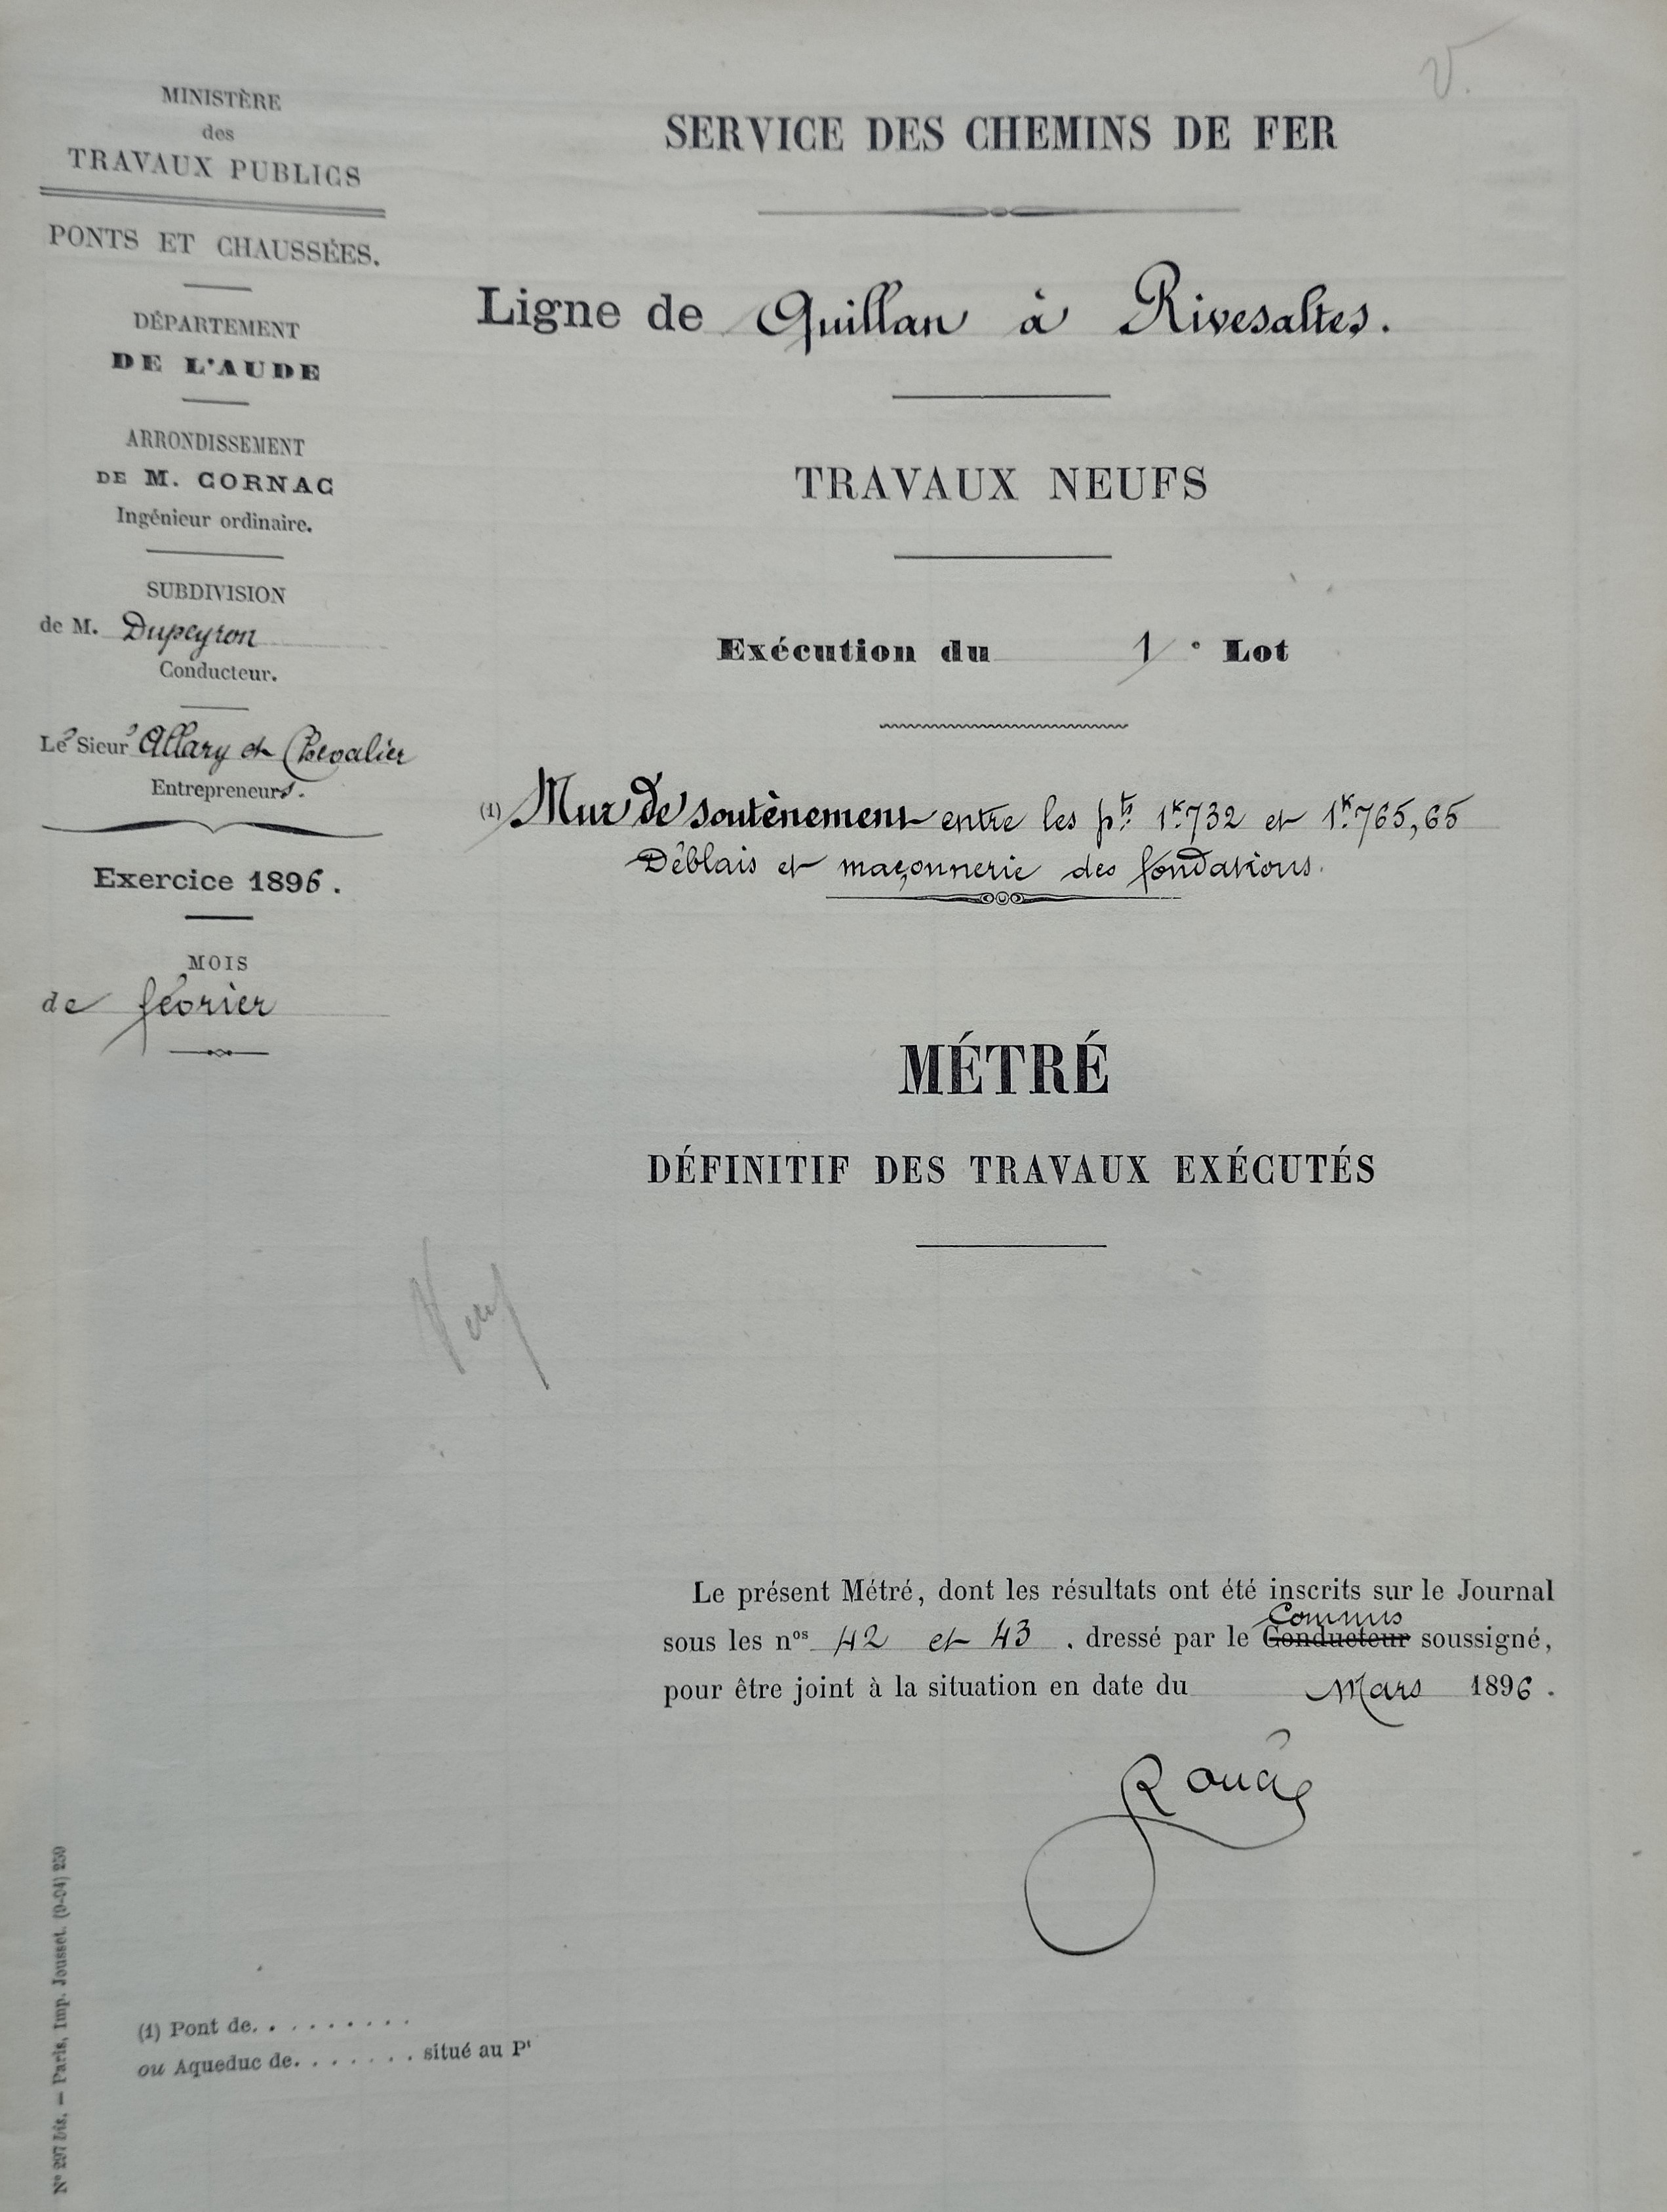 MINISTÈRE
des
TRAVAUX PUBLICS
PONTS ET CHAUSSÉES.
DÉPARTEMENT
DE L'AUDE
ARRONDISSEMENT
DE M. CORNAC
Ingénieur ordinaire.
SUBDIVISION
de M. Dupeyron
Conducteur.
Les Sieurs Allary et Chevalier
Entrepreneurs.
Exercice 1896.
MOIS
de février
V.
SERVICE DES CHEMINS DE FER
Ligne de Quillan à Rivesaltes.
TRAVAUX NEUFS
Exécution du 1e Lot
(1) Mur de soutènement entre les pts 1k732 et 1k765,65
Déblais et maçonnerie des fondations.
MÉTRÉ
DÉFINITIF DES TRAVAUX EXÉCUTÉS
Le présent Métré, dont les résultats ont été inscrits sur le Journal
Commis
sous les nos 42 et 43, dressé par le Conducteur soussigné,
pour être joint à la situation en date du Mars 1896.
(1) Pont de. . . . . . . . .
ou Aqueduc de. . . . . . . situé au Pt
No 297 bis. — Paris, Imp. Jousset. (9-94) 250